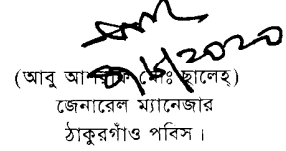 ৯/৮/২০২০
(আবু আশরাফ মোঃ ছালেহ্)
জেনারেল ম্যানেজার
ঠাকুরগাঁও পবিস ।